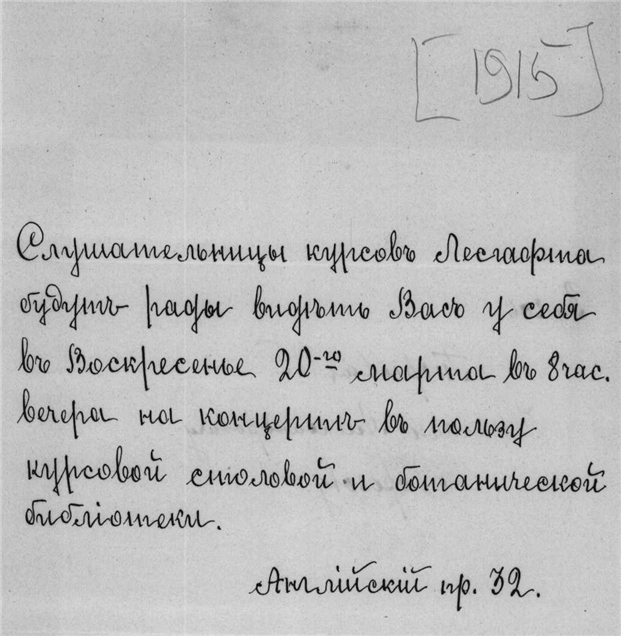 [1915]
Слушательницы курсовъ Лесгафта
будутъ рады видѣть Васъ у себя
въ Воскресенье 20-го марта въ 8 час.
вечера на концертъ въ пользу
курсовой столовой и ботанической
библіотеки.
Англійскій пр. 32.